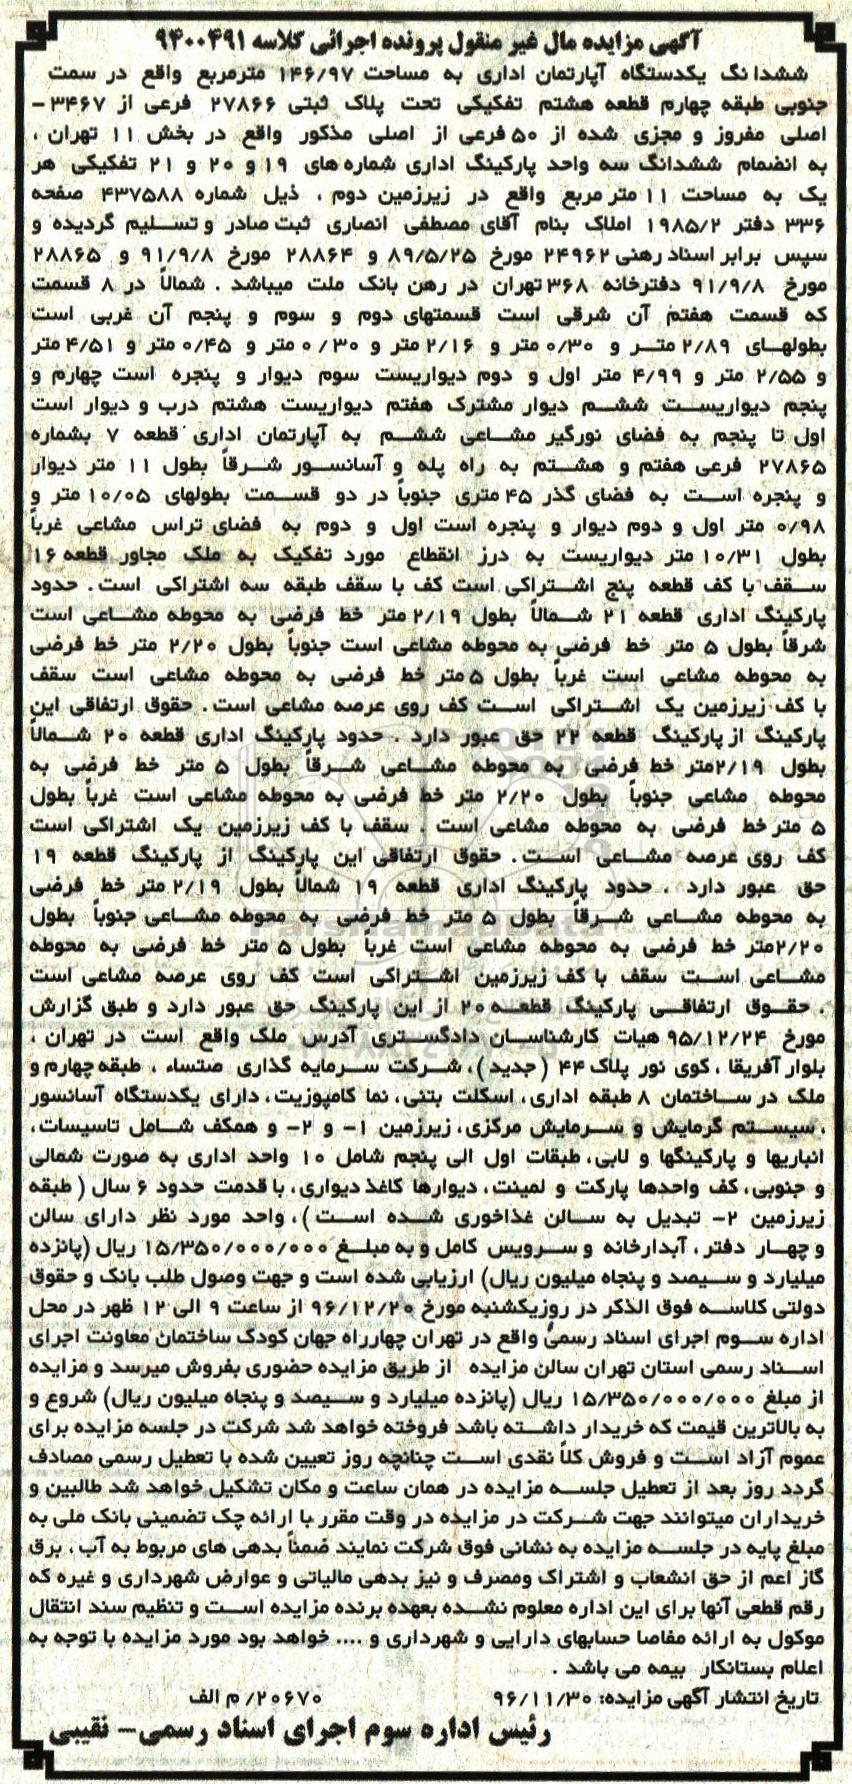 آگهی مزایده مال غیر منقول پرونده اجرائی کلاسه ۹۴۰۰۴۹۱
ششدانگ یکدستگاه آپارتمان اداری به مساحت ۱۴۶/۹۷ مترمربع واقع در سمت
جنوبی طبقه چهارم قطعه هشتم تفکیکی تحت پلاک ثبتی ۲۷۸۶۶ فرعی از ۳۴۶۷ -
اصلی مفروز و مجزی شده از ۵۰ فرعی از اصلی مذکور واقع در بخش ۱۱ تهران ،
به انضمام ششدانگ سه واحد پارکینگ اداری شماره های ۱۹ و ۲۰ و ۲۱ تفکیکی هر
یک به مساحت ۱۱ متر مربع واقع در زیرزمین دوم ، ذیل شماره ۴۳۷۵۸۸ صفحه
۳۳۶ دفتر ۱۹۸۵/۲ املاک بنام آقای مصطفی انصاری ثبت صادر و تسلیم گردیده و
سپس برابر اسناد رهنی ۲۴۹۶۲ مورخ ۸۹/۵/۲۵ و ۲۸۸۶۴ مورخ ۹۱/۹/۸ و ۲۸۸۶۵
مورخ ۹۱/۹/۸ دفترخانه ۳۶۸ تهران در رهن بانک ملت میباشد . شمالاً در ۸ قسمت
که قسمت هفتم آن شرقی است قسمتهای دوم و سوم و پنجم آن غربی است
بطولهای ۲/۸۹ متر و ۰/۳۰ متر و ۲/۱۶ متر و ۰/۳۰ متر و ۰/۴۵ متر و ۴/۵۱ متر
و ۲/۵۵ متر و ۴/۹۹ متر اول و دوم دیواریست سوم دیوار و پنجره است چهارم و
پنجم دیواریست ششم دیوار مشترک هفتم دیواریست هشتم درب و دیوار است
اول تا پنجم به فضای نورگیر مشاعی ششم به آپارتمان اداری قطعه ۷ بشماره
۲۷۸۶۵ فرعی هفتم و هشتم به راه پله و آسانسور شرقاً بطول ۱۱ متر دیوار
و پنجره است به فضای گذر ۴۵ متری جنوباً در دو قسمت بطولهای ۱۰/۰۵ متر و
۰/۹۸ متر اول و دوم دیوار و پنجره است اول و دوم به فضای تراس مشاعی غرباً
بطول ۱۰/۳۱ متر دیواریست به درز انقطاع مورد تفکیک به ملک مجاور قطعه ۱۶
سقف با کف قطعه پنج اشتراکی است کف با سقف طبقه سه اشتراکی است . حدود
پارکینگ اداری قطعه ۲۱ شمالاً بطول ۲/۱۹ متر خط فرضی به محوطه مشاعی است
شرقاً بطول ۵ متر خط فرضی به محوطه مشاعی است جنوباً بطول ۲/۲۰ متر خط فرضی
به محوطه مشاعی است غرباً بطول ۵ متر خط فرضی به محوطه مشاعی است سقف
با کف زیرزمین یک اشتراکی است کف روی عرصه مشاعی است . حقوق ارتفاقی این
پارکینگ از پارکینگ قطعه ۲۲ حق عبور دارد . حدود پارکینگ اداری قطعه ۲۰ شمالاً
بطول ۲/۱۹متر خط فرضی به محوطه مشاعی شرقاً بطول ۵ متر خط فرضی به
محوطه مشاعی جنوباً بطول ۲/۲۰ متر خط فرضی به محوطه مشاعی است غرباً بطول
۵ متر خط فرضی به محوطه مشاعی است . سقف با کف زیرزمین یک اشتراکی است
کف روی عرصه مشاعی است . حقوق ارتفاقی این پارکینگ از پارکینگ قطعه ۱۹
حق عبور دارد . حدود پارکینگ اداری قطعه ۱۹ شمالاً بطول ۲/۱۹ متر خط فرضی
به محوطه مشاعی شرقاً بطول ۵ متر خط فرضی به محوطه مشاعی جنوباً بطول
۲/۲۰متر خط فرضی به محوطه مشاعی است غرباً بطول ۵ متر خط فرضی به محوطه
مشاعی است سقف با کف زیرزمین اشتراکی است کف روی عرصه مشاعی است
. حقوق ارتفاقی پارکینگ قطعه ۲۰ از این پارکینگ حق عبور دارد و طبق گزارش
مورخ ۹۵/۱۲/۲۴ هیات کارشناسان دادگستری آدرس ملک واقع است در تهران ،
بلوار آفریقا ، کوی نور پلاک ۴۴ ( جدید ) ، شرکت سرمایه گذاری صتساء ، طبقه چهارم و
ملک در ساختمان ۸ طبقه اداری، اسکلت بتنی، نما کامپوزیت، دارای یکدستگاه آسانسور
، سیستم گرمایش و سرمایش مرکزی، زیرزمین ۱- و ۲- و همکف شامل تاسیسات،
انباریها و پارکینگها و لابی، طبقات اول الی پنجم شامل ۱۰ واحد اداری به صورت شمالی
و جنوبی، کف واحدها پارکت و لمینت، دیوارها کاغذ دیواری، با قدمت حدود ۶ سال ( طبقه
زیرزمین ۲- تبدیل به سالن غذاخوری شده است ) ، واحد مورد نظر دارای سالن
و چهار دفتر ، آبدارخانه و سرویس کامل و به مبلغ ۱۵/۳۵۰/۰۰۰/۰۰۰ ریال (پانزده
میلیارد و سیصد و پنجاه میلیون ریال) ارزیابی شده است و جهت وصول طلب بانک و حقوق
دولتی کلاسه فوق الذکر در روزیکشنبه مورخ ۹۶/۱۲/۲۰ از ساعت ۹ الی ۱۲ ظهر در محل
اداره سوم اجرای اسناد رسمی واقع در تهران چهارراه جهان کودک ساختمان معاونت اجرای
اسناد رسمی استان تهران سالن مزایده از طریق مزایده حضوری بفروش میرسد و مزایده
از مبلغ ۱۵/۳۵۰/۰۰۰/۰۰۰ ریال (پانزده میلیارد و سیصد و پنجاه میلیون ریال) شروع و
به بالاترین قیمت که خریدار داشته باشد فروخته خواهد شد شرکت در جلسه مزایده برای
عموم آزاد است و فروش کلاً نقدی است چنانچه روز تعیین شده با تعطیل رسمی مصادف
گردد روز بعد از تعطیل جلسه مزایده در همان ساعت و مکان تشکیل خواهد شد طالبین و
خریداران میتوانند جهت شرکت در مزایده در وقت مقرر با ارائه چک تضمینی بانک ملی به
مبلغ پایه در جلسه مزایده به نشانی فوق شرکت نمایند ضمناً بدهی های مربوط به آب ، برق
گاز اعم از حق انشعاب و اشتراک ومصرف و نیز بدهی مالیاتی و عوارض شهرداری و غیره که
رقم قطعی آنها برای این اداره معلوم نشده بعهده برنده مزایده است و تنظیم سند انتقال
موکول به ارائه مفاصا حسابهای دارایی و شهرداری و .... خواهد بود مورد مزایده با توجه به
اعلام بستانکار بیمه می باشد .
تاریخ انتشار آگهی مزایده: ۹۶/۱۱/۳۰ ۲۰۶۷۰/ م الف
رئیس اداره سوم اجرای اسناد رسمی- نقیبی